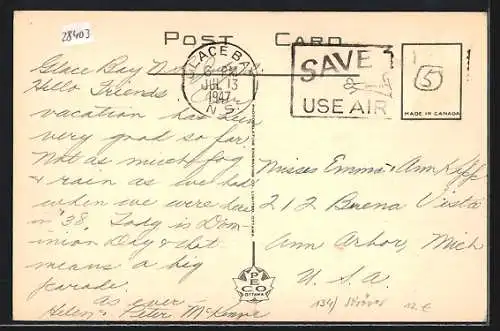 28403
POST CARD
GLACE BAY
6 PM
JUL 13
1947
N S
SAVE
USE AIR
5
MADE IN CANADA
Glace Bay N.S.
Hello Friends. Our
vacation has been
very good so far.
Not as much fog
& rain as we had
when we were here
in '38. Today is Dom-
inion Day & that
means a big
parade.
As ever
Helen & Peter McKenzie
Misses Emma & Ann Kipp
212 Buena Vista
Ann Arbor, Mich
U.S.A.
PECO
OTTAWA
134/
12.€